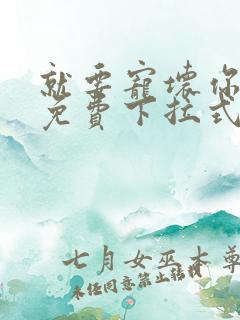 就要寵壞你
免費下拉式
七月女巫本尊
未經同意禁止轉載